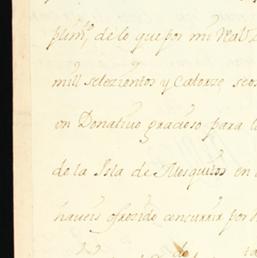 plim.to de lo que por mi Real
mill setezientos y Catorze, se os
un Donativo gracioso para l
de la Isla de Mosquitos en
haveis ofrezido concurrir por